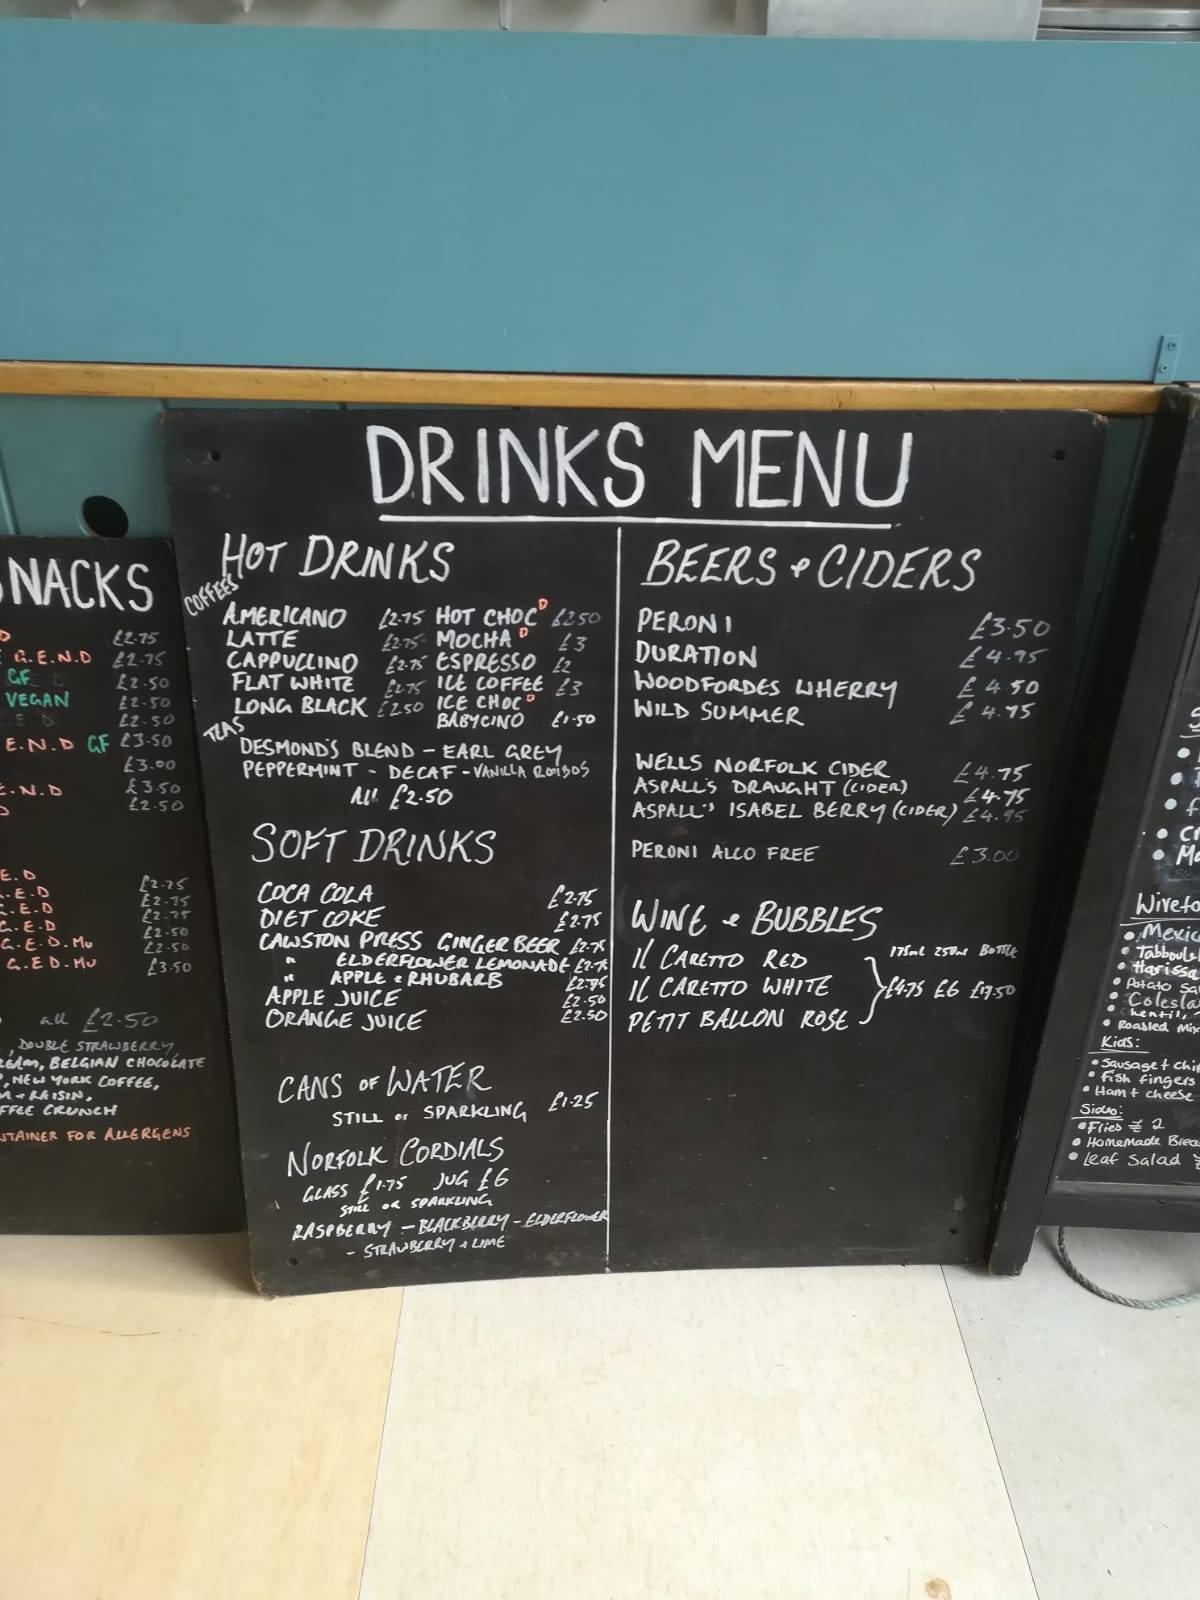 DRINKS MENU
HOT DRINKS
COFFEES
AMERICANO £2.75 HOT CHOC D £2.50
LATTE £2.75 MOCHA D £3
CAPPUCCINO £2.75 ESPRESSO £2
FLAT WHITE £2.75 ICE COFFEE £3
LONG BLACK £2.50 ICE CHOC D
BABYCINO £1.50
TEAS
DESMOND'S BLEND - EARL GREY
PEPPERMINT - DECAF - VANILLA ROOIBOS
All £2.50
SOFT DRINKS
COCA COLA £2.75
DIET COKE £2.75
CAWSTON PRESS GINGER BEER £2.75
" ELDERFLOWER LEMONADE £2.75
" APPLE & RHUBARB £2.75
APPLE JUICE £2.50
ORANGE JUICE £2.50
CANS OF WATER
STILL or SPARKLING £1.25
NORFOLK CORDIALS
GLASS £1.75 JUG £6
STILL OR SPARKLING
RASPBERRY - BLACKBERRY - ELDERFLOWER
- STRAWBERRY & LIME
BEERS & CIDERS
PERONI £3.50
DURATION £4.95
WOODFORDES WHERRY £4.50
WILD SUMMER £4.75
WELLS NORFOLK CIDER £4.75
ASPALL'S DRAUGHT (CIDER) £4.75
ASPALL'S ISABEL BERRY (CIDER) £4.95
PERONI ALCO FREE £3.00
WINE & BUBBLES
175ml 250ml BOTTLE
IL CARETTO RED
IL CARETTO WHITE £4.75 £6 £17.50
PETIT BALLON ROSE
NACKS
D £2.75
G.E.N.D £2.75
GF £2.50
VEGAN £2.50
£2.50
E.N.D GF £3.50
£3.00
E.N.D £3.50
£2.50
E.D £2.75
G.E.D £2.75
G.E.D £2.75
G.E.D £2.50
G.E.D.Mu £2.50
G.E.D.Mu £3.50
all £2.50
, DOUBLE STRAWBERRY
BELGIAN CHOCOLATE
, NEW YORK COFFEE,
& RAISIN,
CRUNCH
FOR ALLERGENS
Kids:
• Sausage +
• Fish fingers
• Ham + cheese
Sides:
• Fries £ 2
• HomeMade
• Leaf Salad